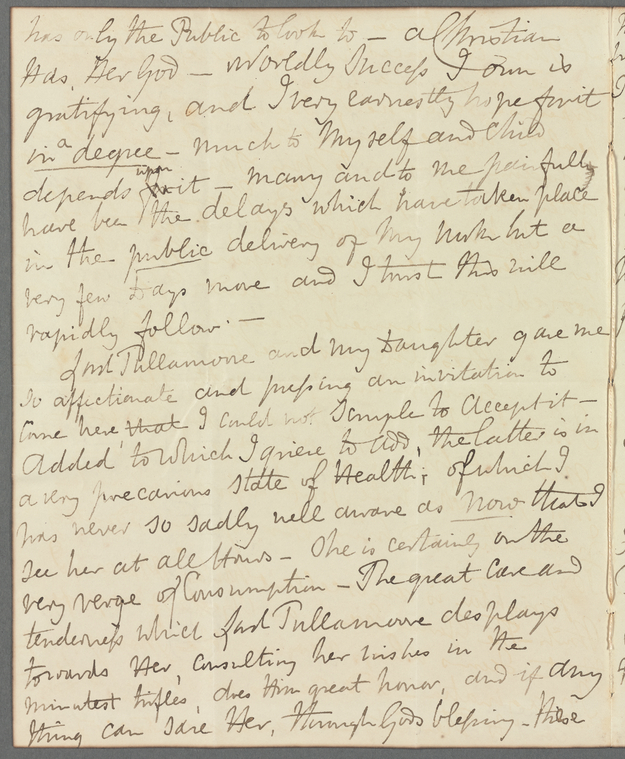 has only the Public to look to — a Christian
Has Her God — Worldly Success I own is
gratifying, and I very earnestly hope for it
in a degree — much to Myself and Child
depends upon it — many and to me painfull
have been the delays which have taken place
in the public delivery of My Work but a
very few Days more and I trust this will
rapidly follow. —
Lord Tullamoore and my Daughter gave me
so affectionate and pressing an invitation to
Come here that I could not Scruple to Accept it —
Added to which I grieve to add, the latter is in
a very precarious state of Health; of which I
was never so sadly well aware as now that I
see her at all Hours — She is certainly on the
very verge of Consumption — The great Care and
tenderness which Lord Tullamoore desplays
towards Her, Consulting her wishes in the
minutest trifles, does Him great honor, and if any
thing can save Her, through Gods blessing — these